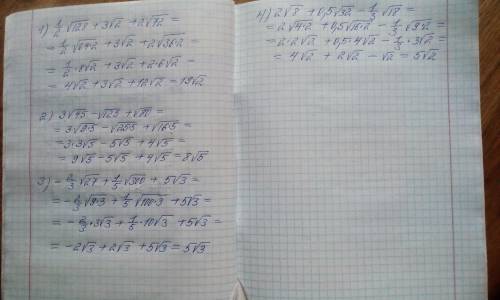 1) 1/2 √128 + 3√2 + 2√72 =
= 1/2 √64·2 + 3√2 + 2√36·2 =
= 1/2 · 8√2 + 3√2 + 2·6√2 =
= 4√2 + 3√2 + 12√2 = 19√2
2) 3√45 - √125 + √80 =
= 3√9·5 - √25·5 + √16·5 =
= 3·3√5 - 5√5 + 4√5 =
= 9√5 - 5√5 + 4√5 = 8√5
3) - 2/3 √27 + 1/5 √300 + 5√3 =
= - 2/3 √9·3 + 1/5 √100·3 + 5√3 =
= - 2/3 · 3√3 + 1/5 · 10√3 + 5√3 =
= -2√3 + 2√3 + 5√3 = 5√3
4) 2√8 + 0,5√32 - 1/3 √18 =
= 2√4·2 + 0,5√16·2 - 1/3 · √9·2 =
= 2·2√2 + 0,5·4√2 - 1/3 · 3√2 =
= 4√2 + 2√2 - √2 = 5√2